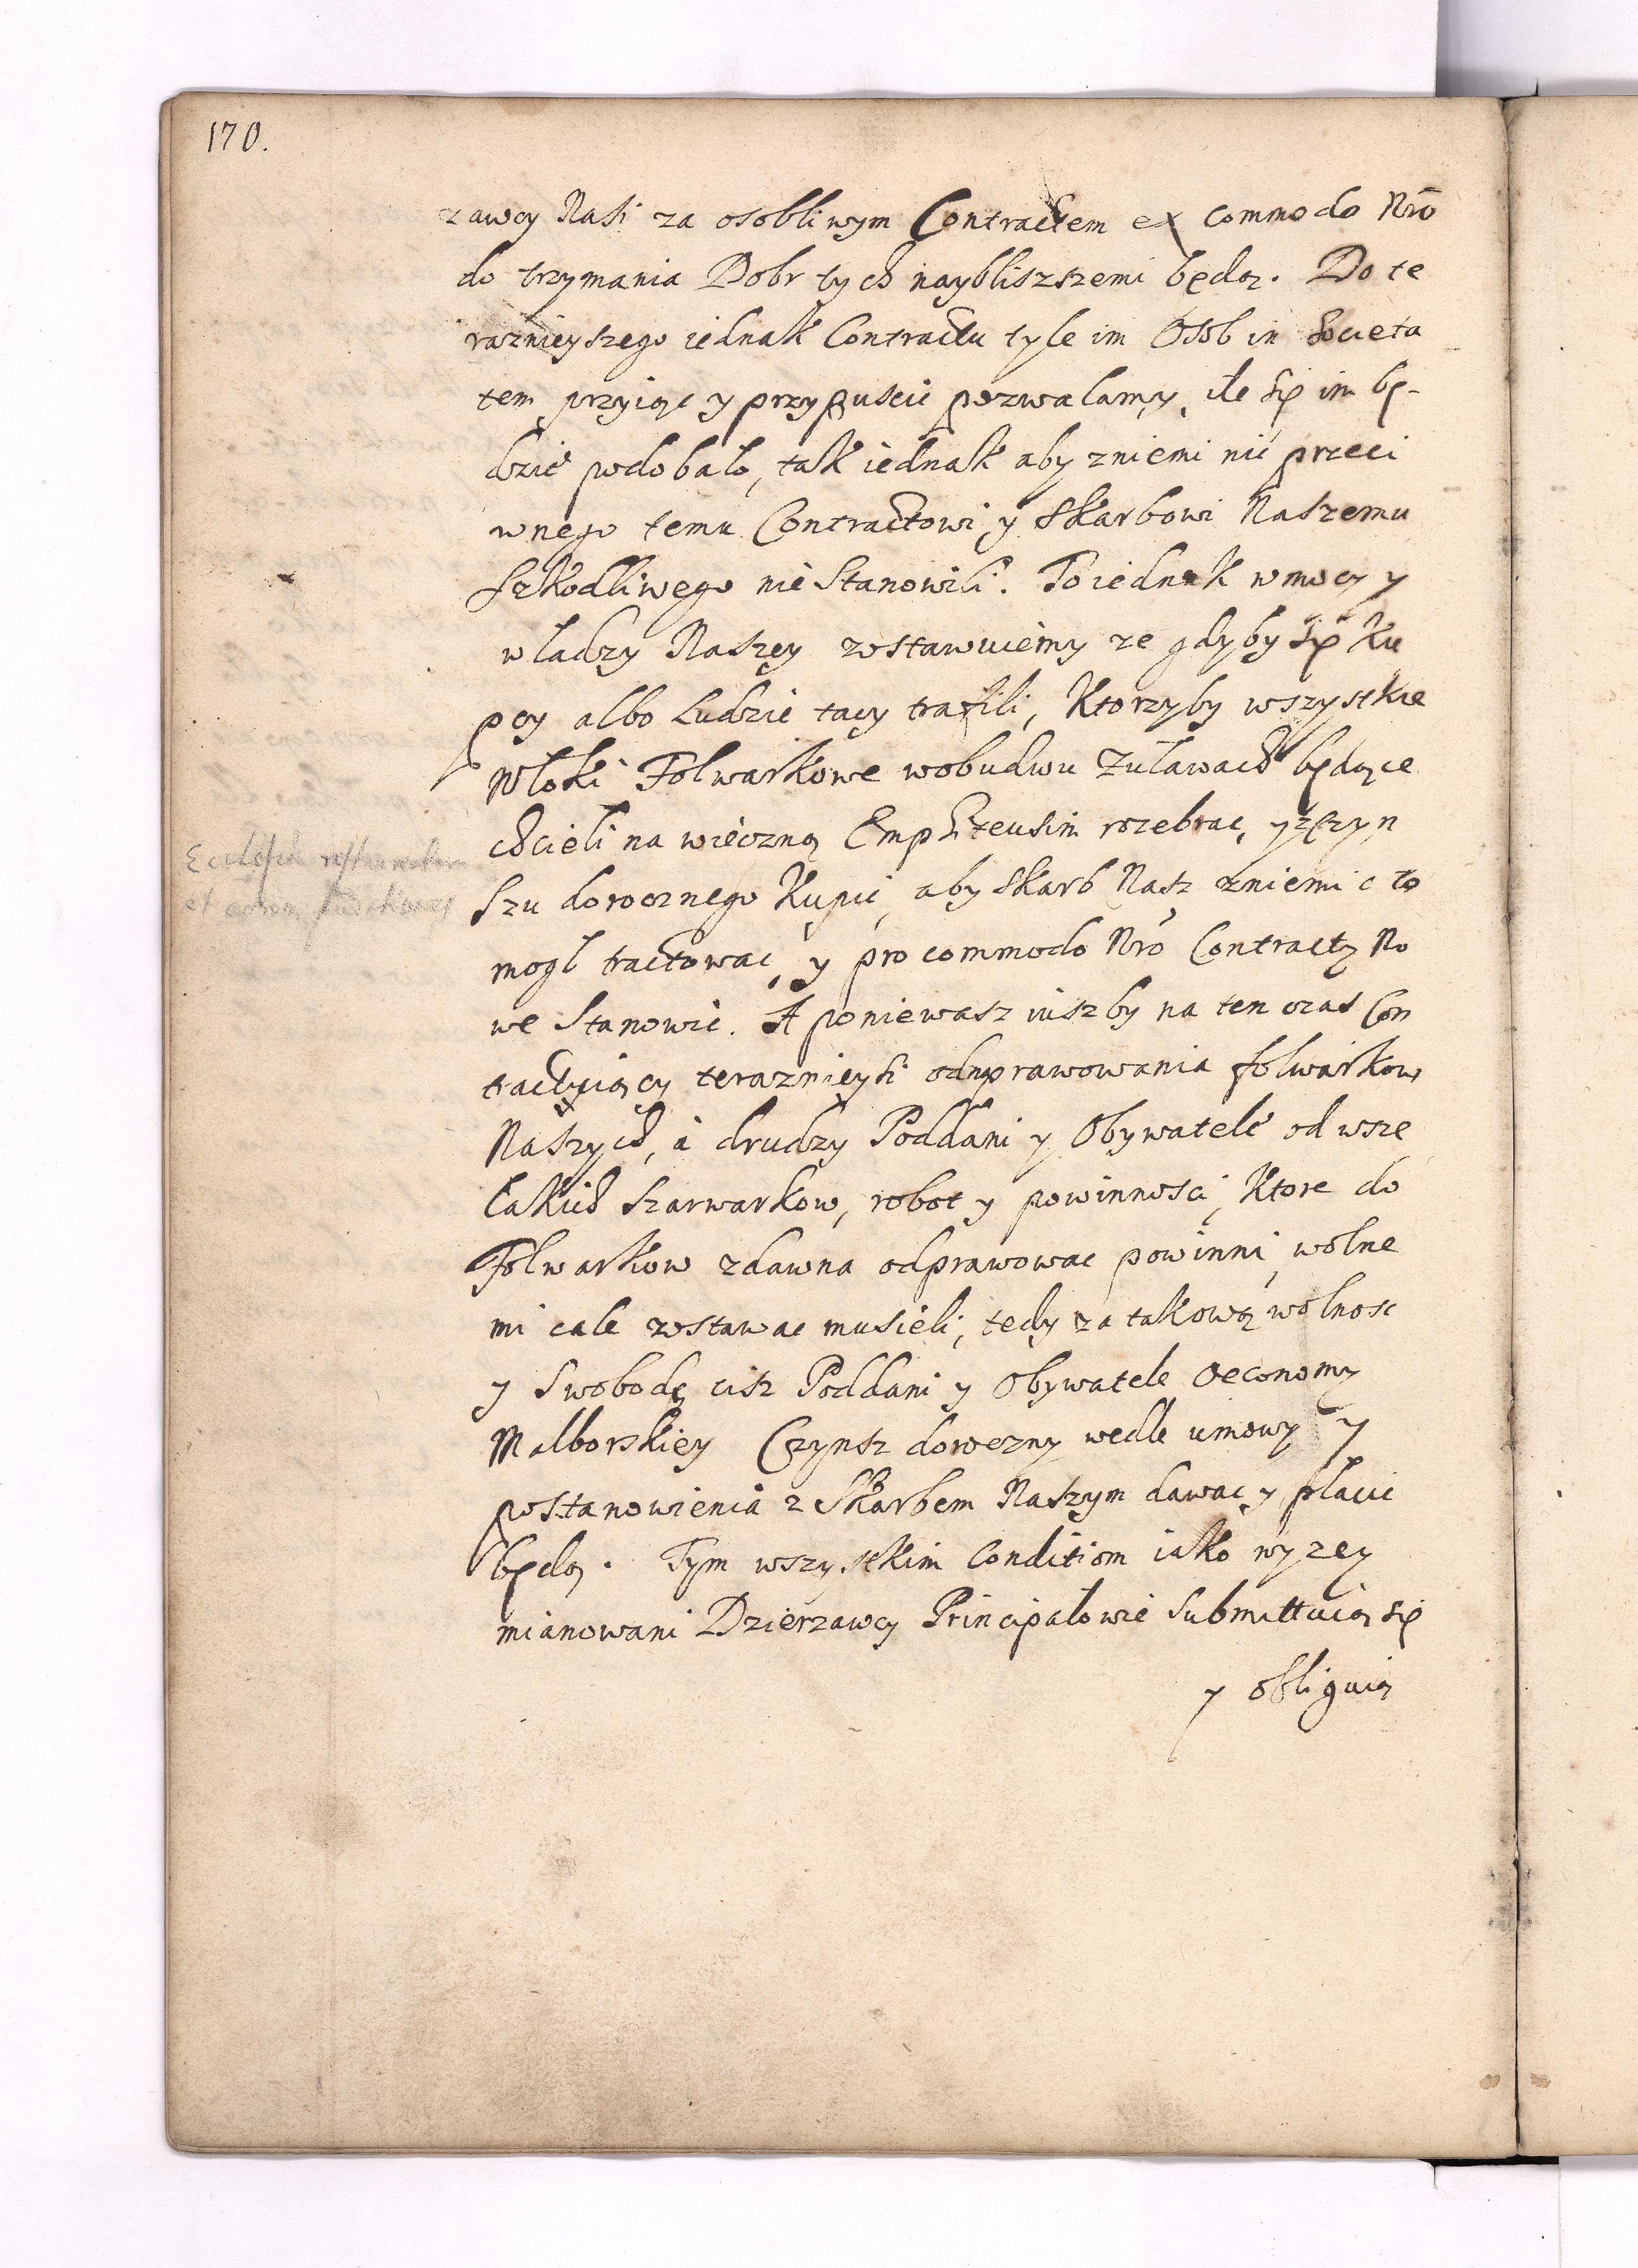 170.
zawcy Nasi za osobliwym Contractem ex commodo Nrō
do trzymania Dobr tych naybliszszemi będą. Do te
raznieyszego iednak Contractu tyle im Osob in Societa
tem przyiąc y przypuscic pozwalamy, ile się im bę-
dzie podobało, tak iednak aby zniemi nic przeci
wnego temu Contractowi y Skarbowi Naszemu
Szkodliwego nie Stanowili. To iednak wmocy y
władzy Naszey zostawuiemy ze gdyby się Ku
pcy albo Ludzie tacy trafili, Ktorzyby wszystkie
Włoki Folwarkowe wobudwu Zuławach będące
chcieli na wieczną Emphiteusim rozebrac, y z Czyn
Szu dorocznego Kupic, aby Skarb Nasz zniemi o to
mogl tractowac, y pro commodo Nrō Contracty No
we Stanowic. A poniewasz iuszby na ten czas Con
tractuiący teraznieysi od uprawowania folwarkow
Naszych, à drudzy Poddani y Obywatele od wsze
lakich Szarwarkow, robot y powinnosci, Ktore do
Folwarkow zdawna odprawowac powinni, wolne
mi cale zostawac musieli, tedy za takową wolnosc
y Swobodę cisz Poddani y Obywatele Oeconomy
Malborskiey Czynsz doroczny wedle umowy y
postanowienia z Skarbem Naszym dawac y płacic
będą. Tym wszystkim Conditiom iako wyzey
mianowani Dzierzawcy Principałowie Submittuią się
y obliguią